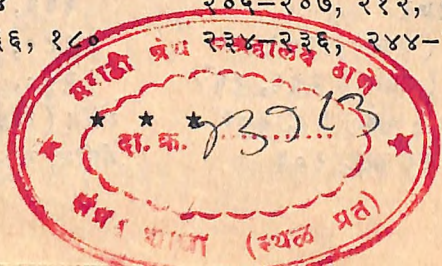 २०६–२०७, २१२,
६, १८० २३४–२३६, २४४–
मराठी ग्रंथ संग्रहालय ठाणे
* * *
दा. क्र.
शाखा (स्थळ प्रत)